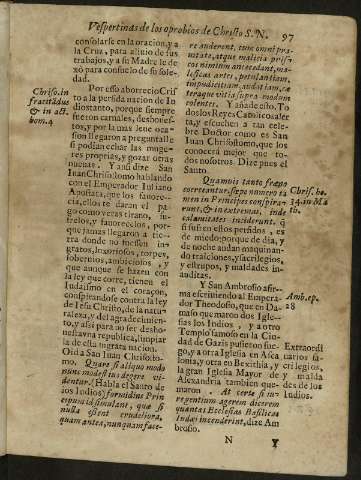 Vespertinas de los oprobios de Christo S. N. 97
consolarse en la oracion, y a
la Cruz, para aliuio de sus
trabajos, y a su Madre le de
xò para consuelo de su sole
dad.
Por esso aborrecio Cris
to a la perdida nacion de In
dios tanto, porque siempre
fueron carnales, deshones
tos, y por la mas leue oca
sion llegaron a preguntalle
si podian echar las muge
res proprias, y gozar otras
nueuas. Y assi dize San
Iuan Chrisostomo hablando
con el Emperador Iuliano
Apostata, que los fauore
cia, ellos te daran el pa
go como veras tirano, fu
relos, y fauorecelos, por
que jamas llegaron a tie
rra donde no fuessen in
gratos, luxoriosos, torpes,
soberuios, ambiciosos, y
que aunque se hazen con
la ley que corre, tienen el
Iudaismo en el coraçon,
conspirandose contra la ley
de Iesu Christo, de la natu
raleza, y del agradecimien
to, y assi para no ser desho
nesta vna republica, limpiar
la de esta ingrata nacion.
Oid a San Iuan Chrisosto-
mo. Quare si aliquo modo
nunc modestius degere vi-
dentur. (Habla el Santo de
los Iudios) formidine Prin
cipum id simulant, quæ si
nulla esset crudeliora,
quam antea, nunquam face-
Chriso. in
fractadus
& in act.
hom. 4
re auderent, tum omni pra-
uitate, atque malitia prisc-
cos nimitum antecedant, ma-
leficas artes, petulantiam,
impudicitiam, auditiam, cæ
teraque vitia supra modum
colentes. Y añade esto. To
dos los Reyes Catolicos aler
ta, y escuchen a tan cele-
bre Doctor como es San
Iuan Chrisostomo, que los
conocerà mejor que to-
dos nosotros. Dize pues el
Santo.
Quamuis tanto fragto
coerteantur, sæpe numero ta
men in Principes conspira-
runt, & in extremas, inde
calamitates inciderunt.
si sus en estos perfidos, es
de miedo; porque de dia, y
de noche andan maquinan-
do traiciones, y sacrilegios,
y estrupos, y maldades in-
auditas.
Y San Ambrosio afir-
ma escriuiendo al Empera-
dor Theodosio, que en Da-
masco que maron dos Igle-
sias los Indios, y a otro
Templo famoso en la Ciu-
dad de Gazis pusieron fue-
go, y a otra Iglesia en Asca
lonia, y otra en Bexithia, y
la gran Iglesia Mayor de
Alexandria tambien que-
maron. At certe si iu-
re gentium agerem dicerem
quantas Ecclesias Basilicas
Iudæi incenderint, dize Am
brosio.
Chris. ho.
34. in Ma
th.
Amb. ep.
28
Extraordi
narios sa
crilegios,
y malda
des de los
Iudios.
N Y